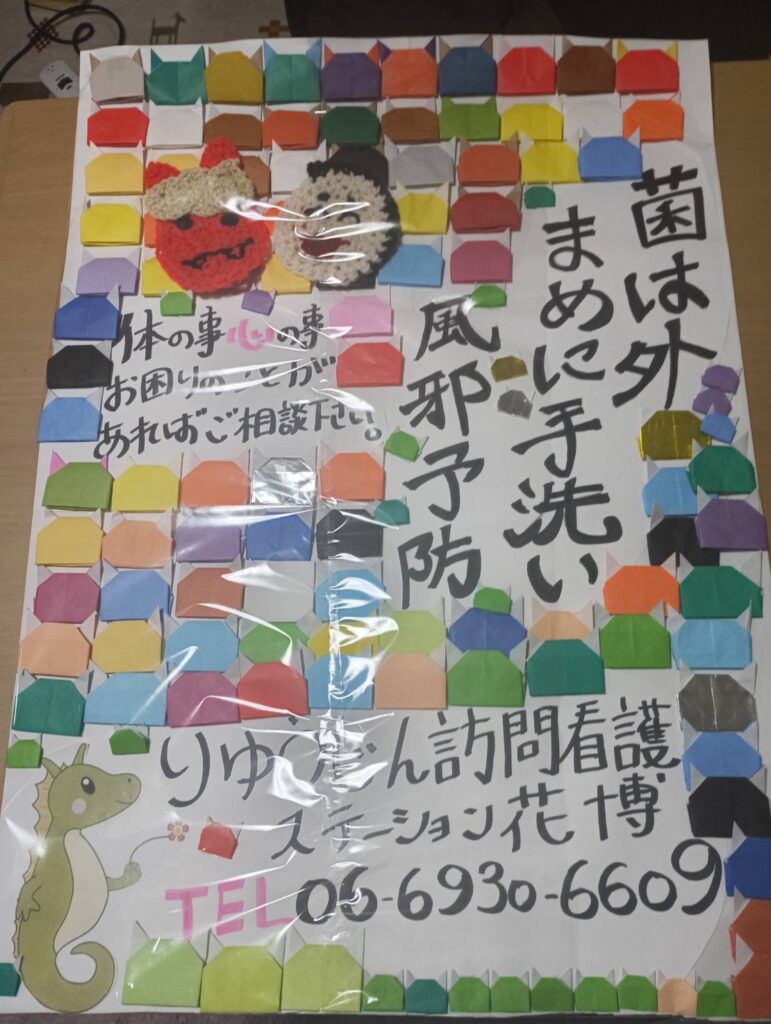 菌は外
まめに手洗い
風邪予防
体の事心の事
お困りのことが
あればご相談下さい。
りゅうじん訪問看護
ステーション花博
TEL06-6930-6609